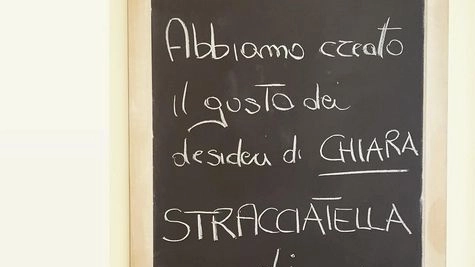 Abbiamo creato
il gusto dei
desideri di CHIARA
STRACCIATELLA